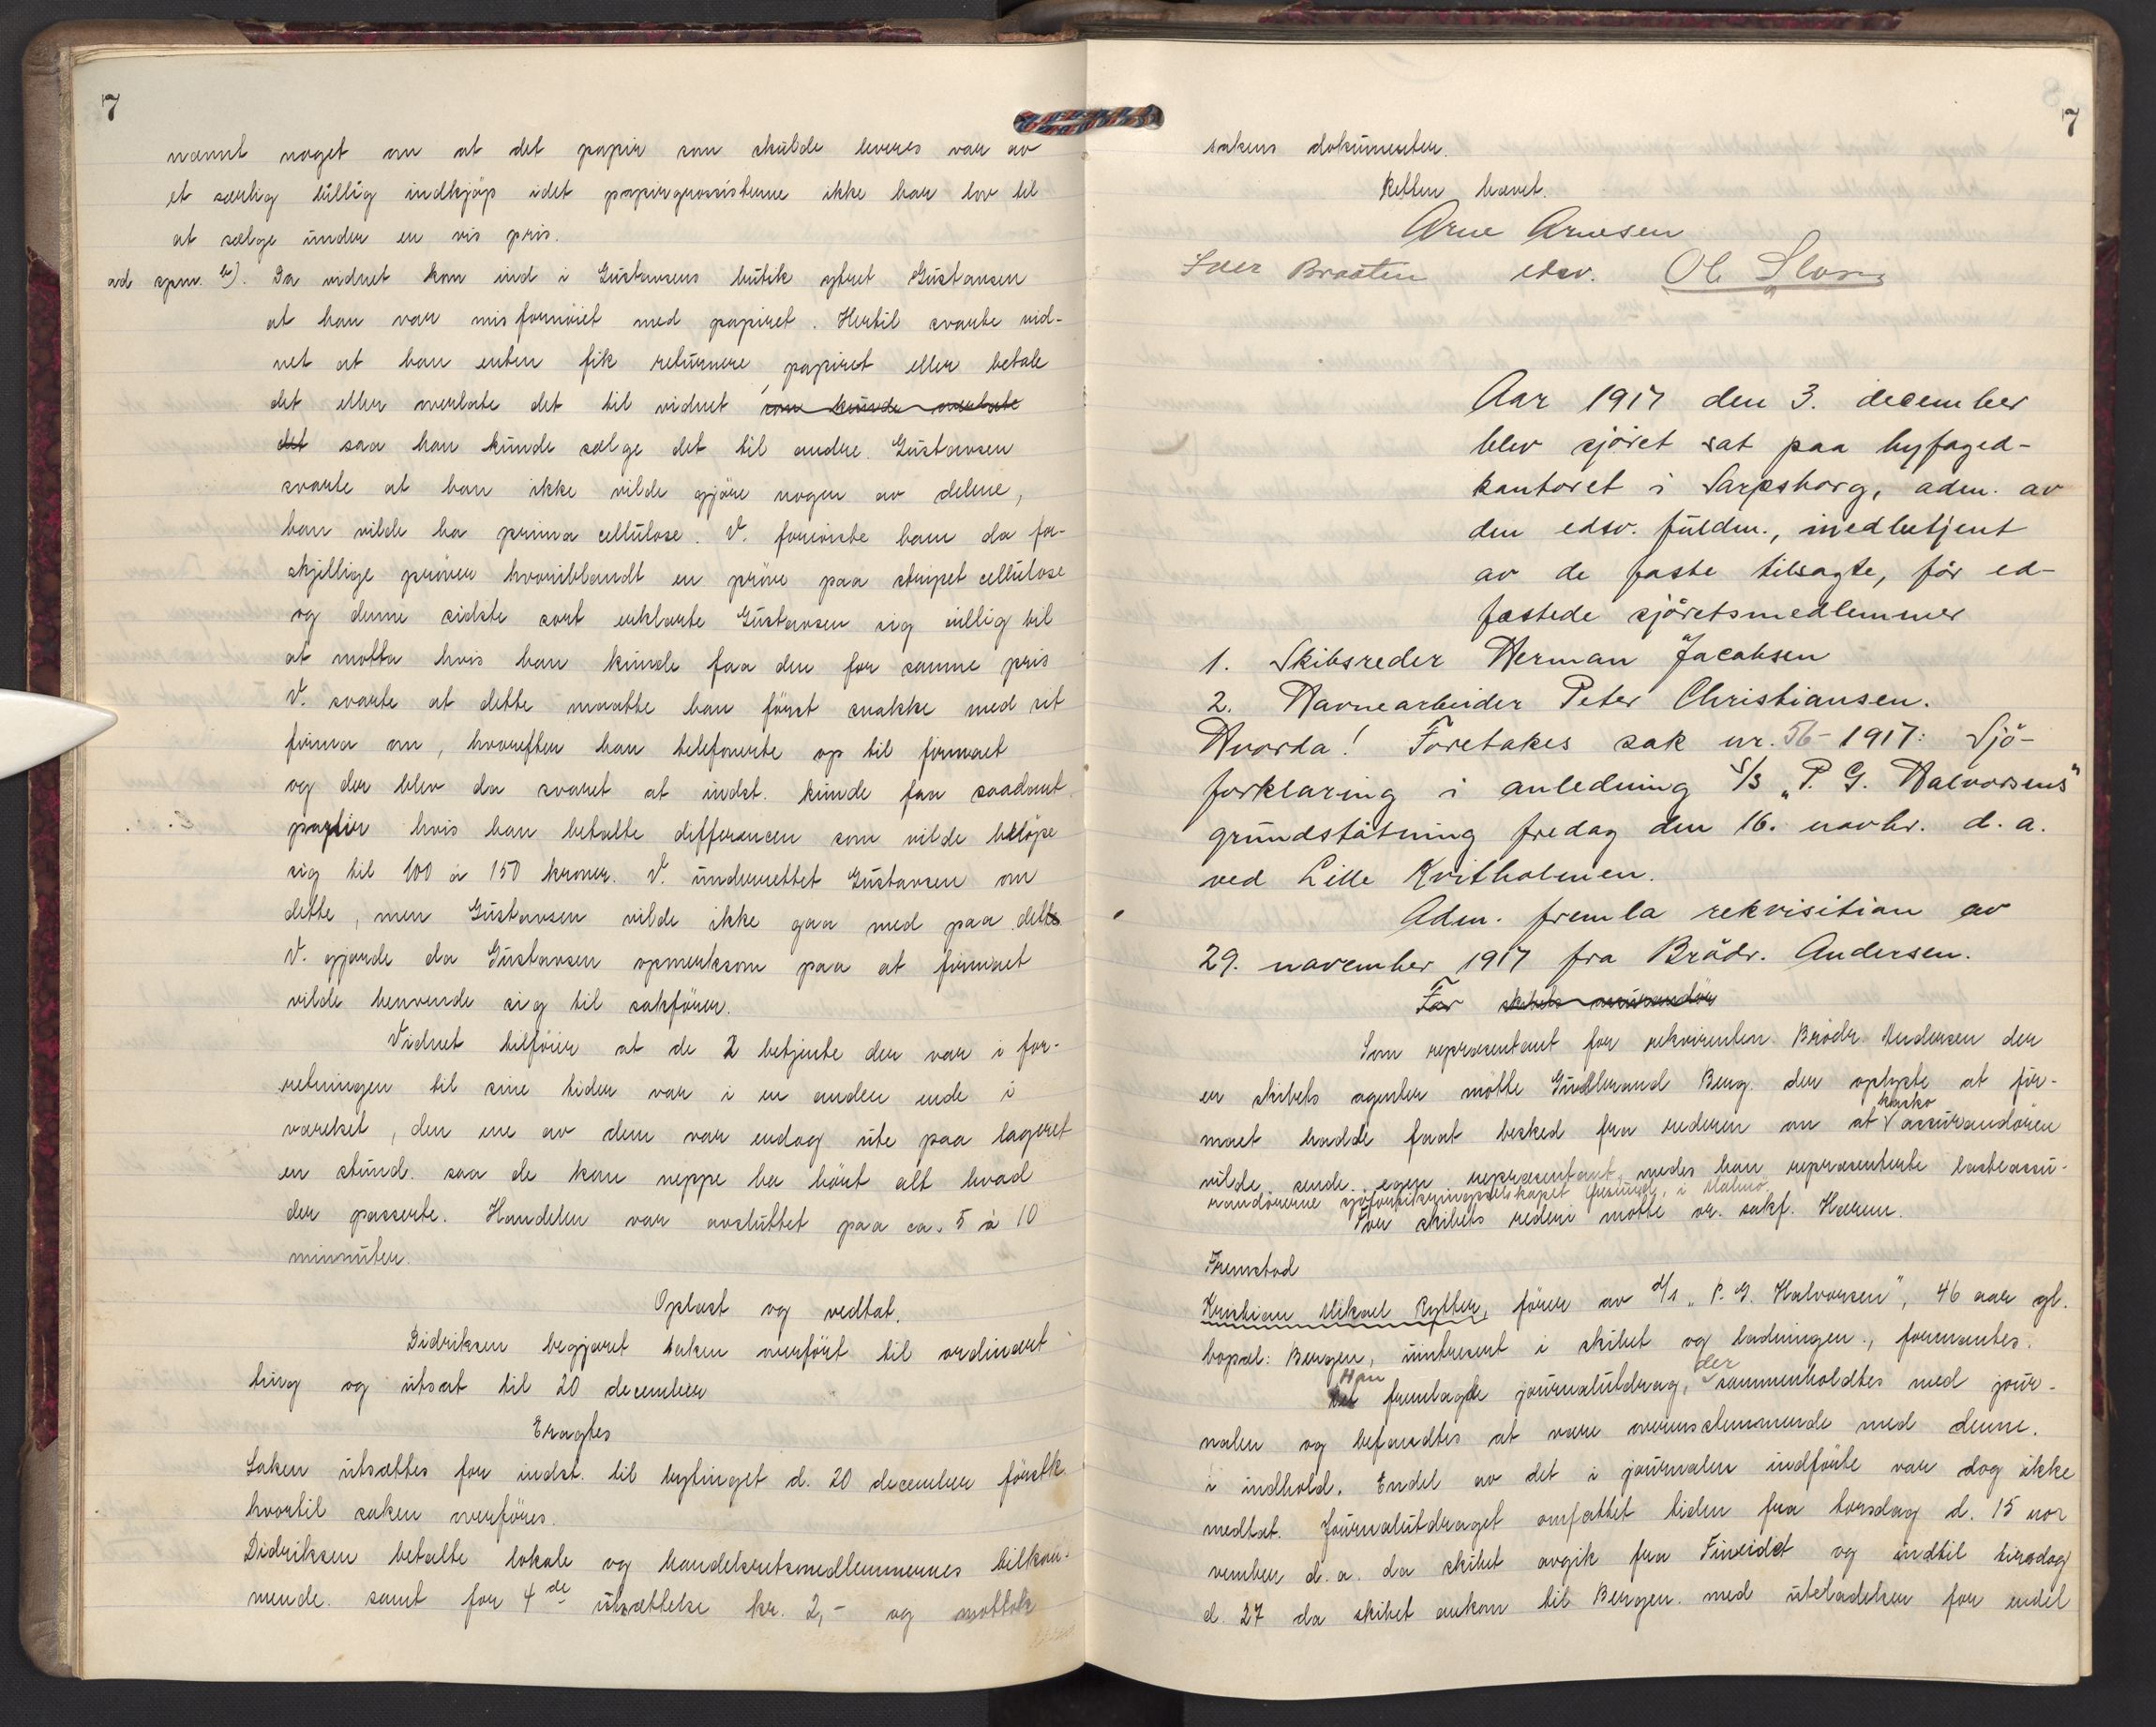 7
nævnt noget om at det papir som skulde leveres var av
et særlig billig indkjøp idet papirgrossisterne ikke har lov til
at sælge under en vis pris.
ad spm. 4). Da vidnet kom ind i Gustavsens butik ytret Gustavsen
at han var misfornøiet med papiret. Hertil svarte vid-
net at han enten fik returnere papiret eller betale
det eller overlate det til vidnet som kunde overlate
det saa han kunde sælge det til andre. Gustavsen
svarte at han ikke vilde gjøre nogen av delene,
han vilde ha prima cellulose. V. foreviste ham da for-
skjellige prøver hvoriblandt en prøve paa stripet cellulose
og denne sidste sort erklærte Gustavsen sig villig til
at motta hvis han kunde faa den for samme pris
V. svarte at dette maatte han først snakke med sit
firma om, hvorefter han telefonerte op til firmaet
og der blev da svaret at indst. kunde faa saadant
papir hvis han betalte differancen som vilde beløpe
sig til 100 à 150 kroner. V. underrettet Gustavsen om
dette, men Gustavsen vilde ikke gaa med paa dette
V. gjorde da Gustavsen opmerksom paa at firmaet
vilde henvende sig til sakfører.
Vidnet tilføier at de 2 betjente der var i for-
retningen til sine tider var i en anden ende i
værelset, den ene av dem var endog ute paa lageret
en stund. saa de kan neppe ha hørt alt hvad
der passerte. Handelen var avsluttet paa ca. 5 à 10
minnuter.
Oplæst og vedtat.
Didriksen begjæret saken overført til ordinært
ting og utsat til 20 december
Eragtes
Saken utsættes for indst. til bytinget d. 20 december førstk.
hvortil saken overføres.
Didriksen betalte lokale og handelsretsmedlemmernes tilkom-
mende. samt for 4de utsættelse kr. 2,- og mottok
7
sakens dokumenter.
Retten hævet.
Arne Arnesen
Iver Braaten edsv. Ol.
Aar 1917 den 3. december
blev sjøret sat paa byfoged-
kontoret i Sarpsborg, adm. av
den edsv. fuldm., medbetjent
av de faste tilsagte, før ed-
fæstede sjøretsmedlemmer
1. Skibsreder Herman Jacobsen
2. Havnearbeider Peter Christiansen.
Hvorda! Foretokes sak nr. 56 1917: Sjø-
forklaring i anledning S/S „P. G. Halvorsens"
grundstøtning fredag den 16. novbr. d. a.
ved Lille Kvitholmen.
Adm. fremla rekvisition av
29. november 1917 fra Brødr. Andersen.
For skibets assurandør
Som repræsentant for rekvirenten Brødr. Andersen der
er skibets agenter møtte Gudbrand Berg. der oplyste at fir-
kasko
maet hadde faat besked fra rederen om at assurandøren
vilde sende egen repræsentant, medes han repræsenterte lasteassu-
randørerne sjøforsikringsselskapet i Malmø.
For skibets rederi møtte or. sakf. Harem.
Fremstod
Kristian Mikael Rytter, fører av d/s „P. G. Halvorsen", 46 aar gl.
bopæl: Bergen, uinteresert i skibet og ladningen., formantes.
Han der
fremlagde journalutdrag, sammenholdtes med jour-
nalen og befandtes at være overensstemmende med denne.
i indhold. Endel av det i journalen indførte var dog ikke
medtat. Journalutdraget omfattet tiden fra torsdag d. 15 nov
vember d. a. da skibet avgik fra Fineidet og indtil tirsdag
d. 27 da skibet ankom til Bergen. med uteladelser for endel